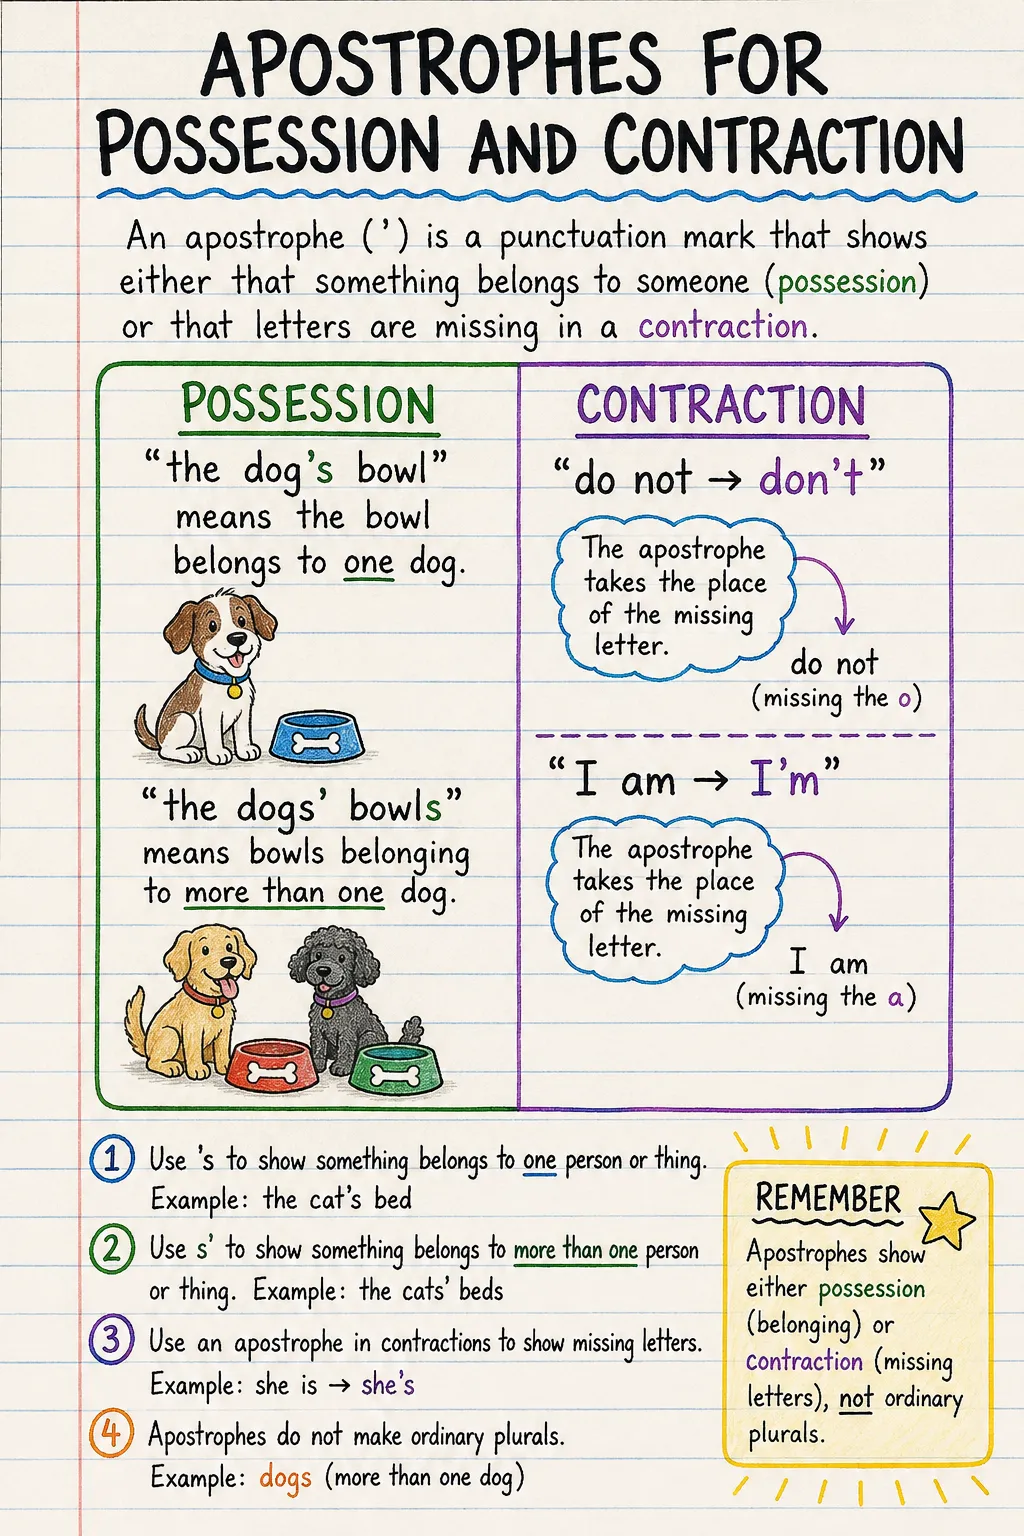 APOSTROPHES FOR
POSSESSION AND CONTRACTION
An apostrophe (’) is a punctuation mark that shows
either that something belongs to someone (possession)
or that letters are missing in a contraction.
POSSESSION
“the dog’s bowl”
means the bowl
belongs to one dog.
“the dogs’ bowls”
means bowls belonging
to more than one dog.
CONTRACTION
“do not → don’t”
The apostrophe
takes the place
of the missing
letter.
do not
(missing the o)
“I am → I’m”
The apostrophe
takes the place
of the missing
letter.
I am
(missing the a)
1 Use ’s to show something belongs to one person or thing.
Example: the cat’s bed
2 Use s’ to show something belongs to more than one person
or thing. Example: the cats’ beds
3 Use an apostrophe in contractions to show missing letters.
Example: she is → she’s
4 Apostrophes do not make ordinary plurals.
Example: dogs (more than one dog)
REMEMBER
Apostrophes show
either possession
(belonging) or
contraction (missing
letters), not ordinary
plurals.